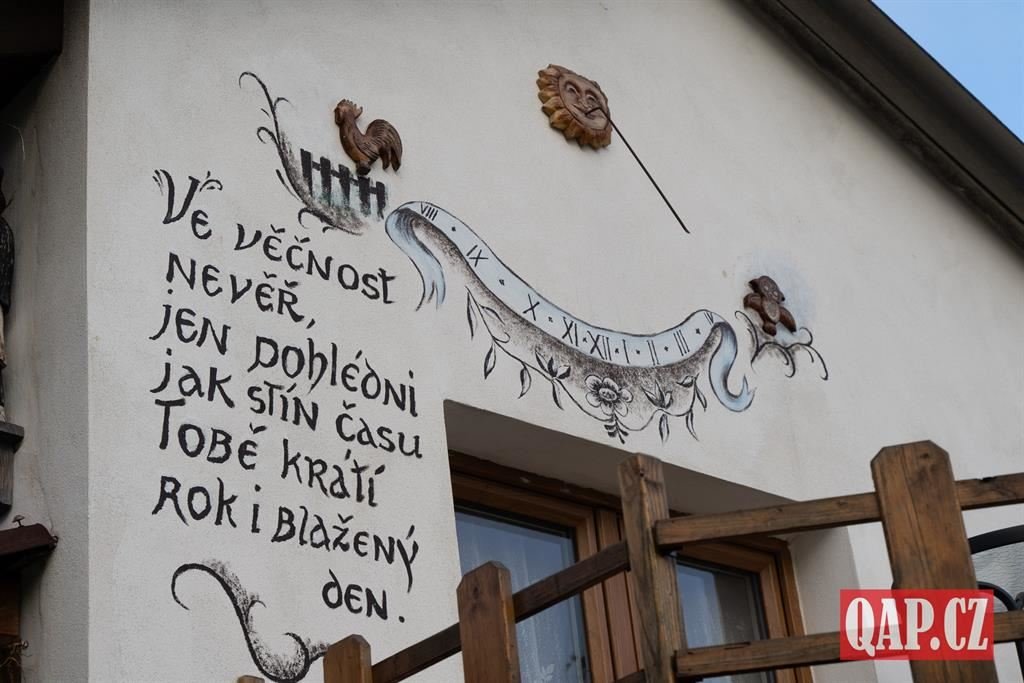 Ve věčnost
nevěř,
jen pohlédni
jak stín času
Tobě krátí
rok i blažený
den.
VIII • IX • X • XI • XII • I • II • III • IV
QAP.CZ